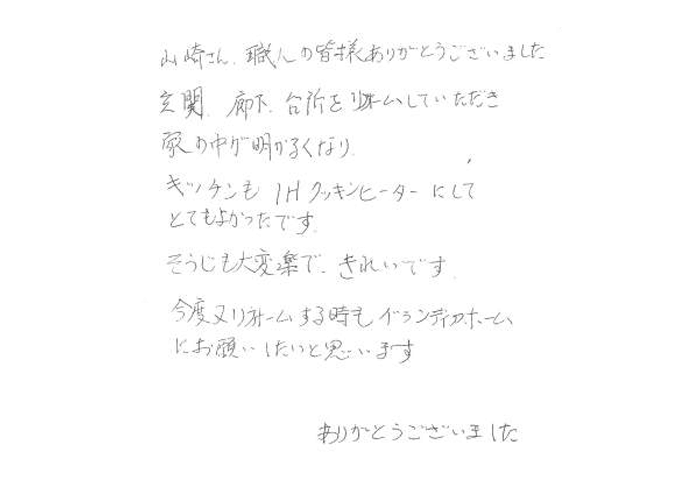 山崎さん、職人の皆様ありがとうございました
玄関、廊下、台所をリホームしていただき
家の中が明かるくなり、
キッチンも IHクッキンヒーターにして
とてもよかったです。
そうじも大変楽で、きれいです。
今度又リホームする時も グランディアホーム
にお願いしたいと思います
ありがとうございました